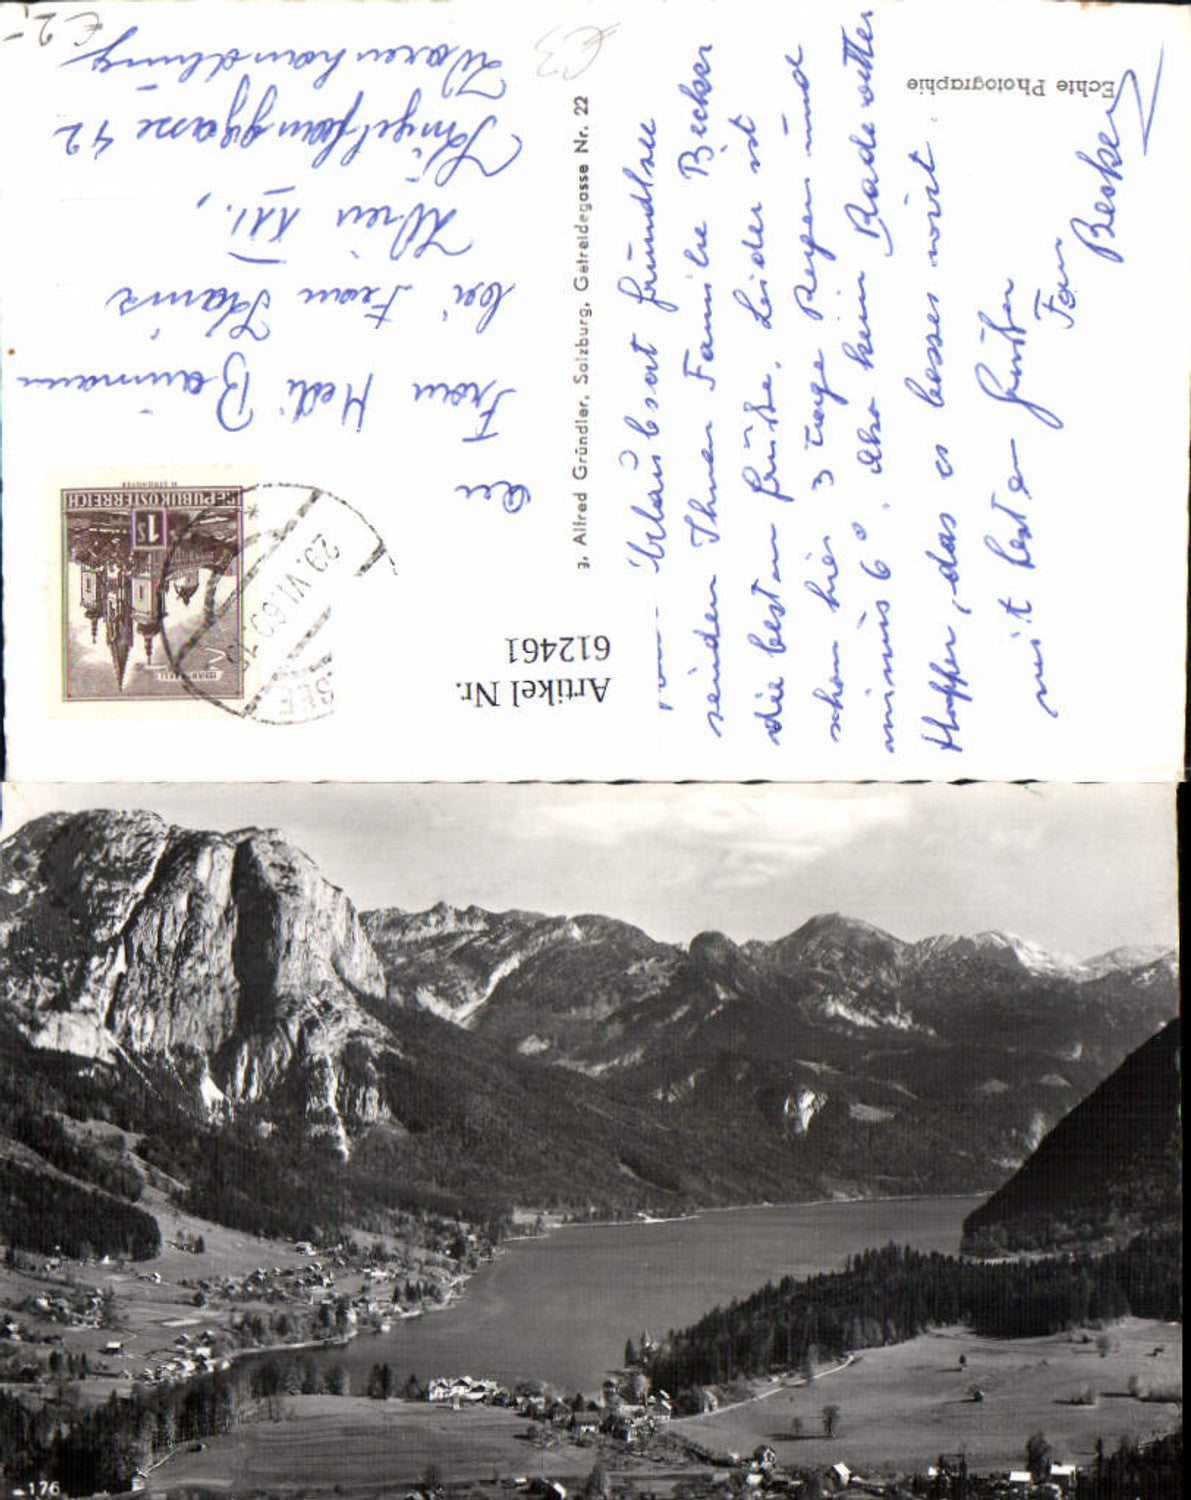 Vom Urlaubsort Grundlsee
senden Ihnen Familie Becker
die besten Grüße. Leider ist
schon hier 3 Tage Regen und
minus 6°. Also kein Badewetter
Hoffen, das es besser wird.
mit besten Grüßen
Fam
Becker
Echte Photographie
g. Alfred Gründler, Salzburg, Getreidegasse Nr. 22
An
Frau Hedi Baumann
bei Frau
Wien XII.,
42
Warenhandlung
REPUBLIK ÖSTERREICH
1S
MARIAZELL
29.VI.60
SEE
Artikel Nr.
612461
€3
€ 2,-
176